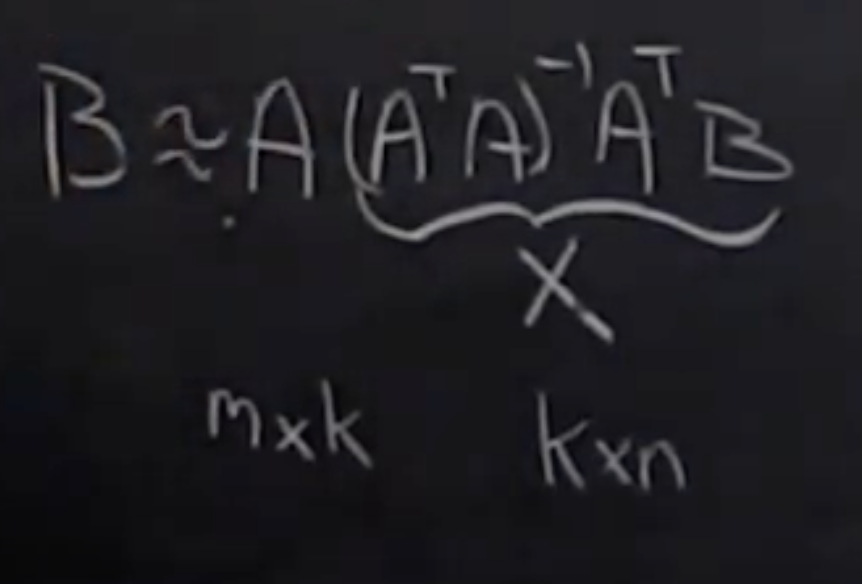 B ≈ A (AᵀA)⁻¹AᵀB
X
m×k k×n